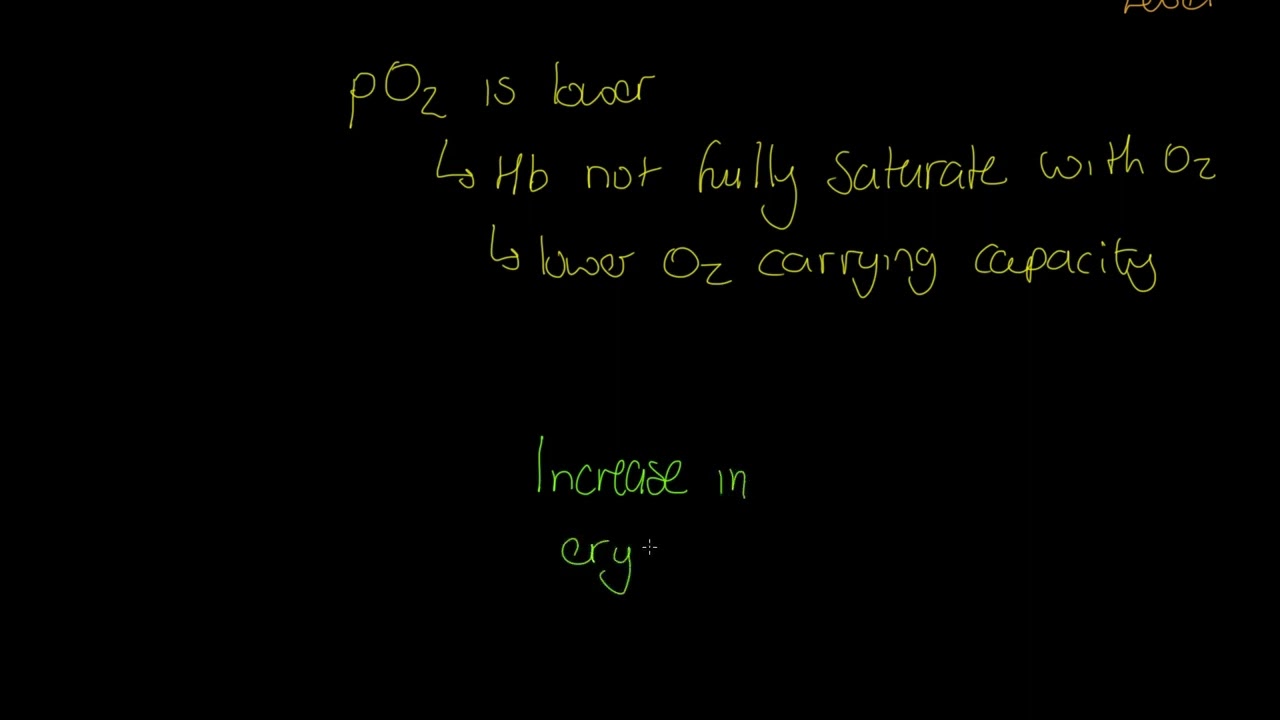 Level
pO2 is lower
↳ Hb not fully saturate with O2
↳ lower O2 carrying capacity
Increase in
ery